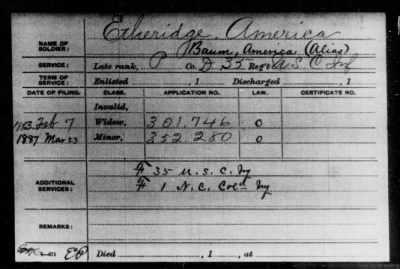 Etheridge, America
NAME OF SOLDIER: Baum, America (Alias)
SERVICE: Late rank, P Co. D 35 Reg't U.S.C. Inf
TERM OF SERVICE: Enlisted , 1 Discharged , 1
DATE OF FILING. CLASS. APPLICATION NO. LAW. CERTIFICATE NO.
Invalid,
1883 Feb 7 Widow, 301.746 O
1887 Mar 23 Minor, 352.280 O
ADDITIONAL SERVICES: # 35 U.S.C. Iy
# 1 N.C. Cold Iy
REMARKS:
Died , 1 , at